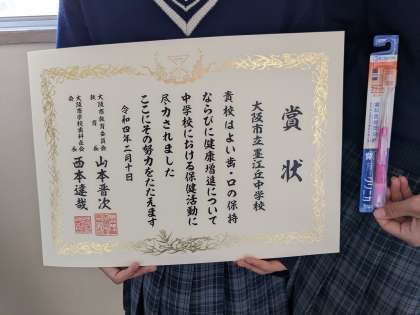 賞状
大阪市立墨江丘中学校
貴校はよい歯・口の保持
ならびに健康増進について
中学校における保健活動に
尽力されました
ここにその努力をたたえます
令和四年二月十日
大阪市教育委員会
教育長 山本晋次
大阪市学校歯科医会
会長 西本達哉
クリニカ